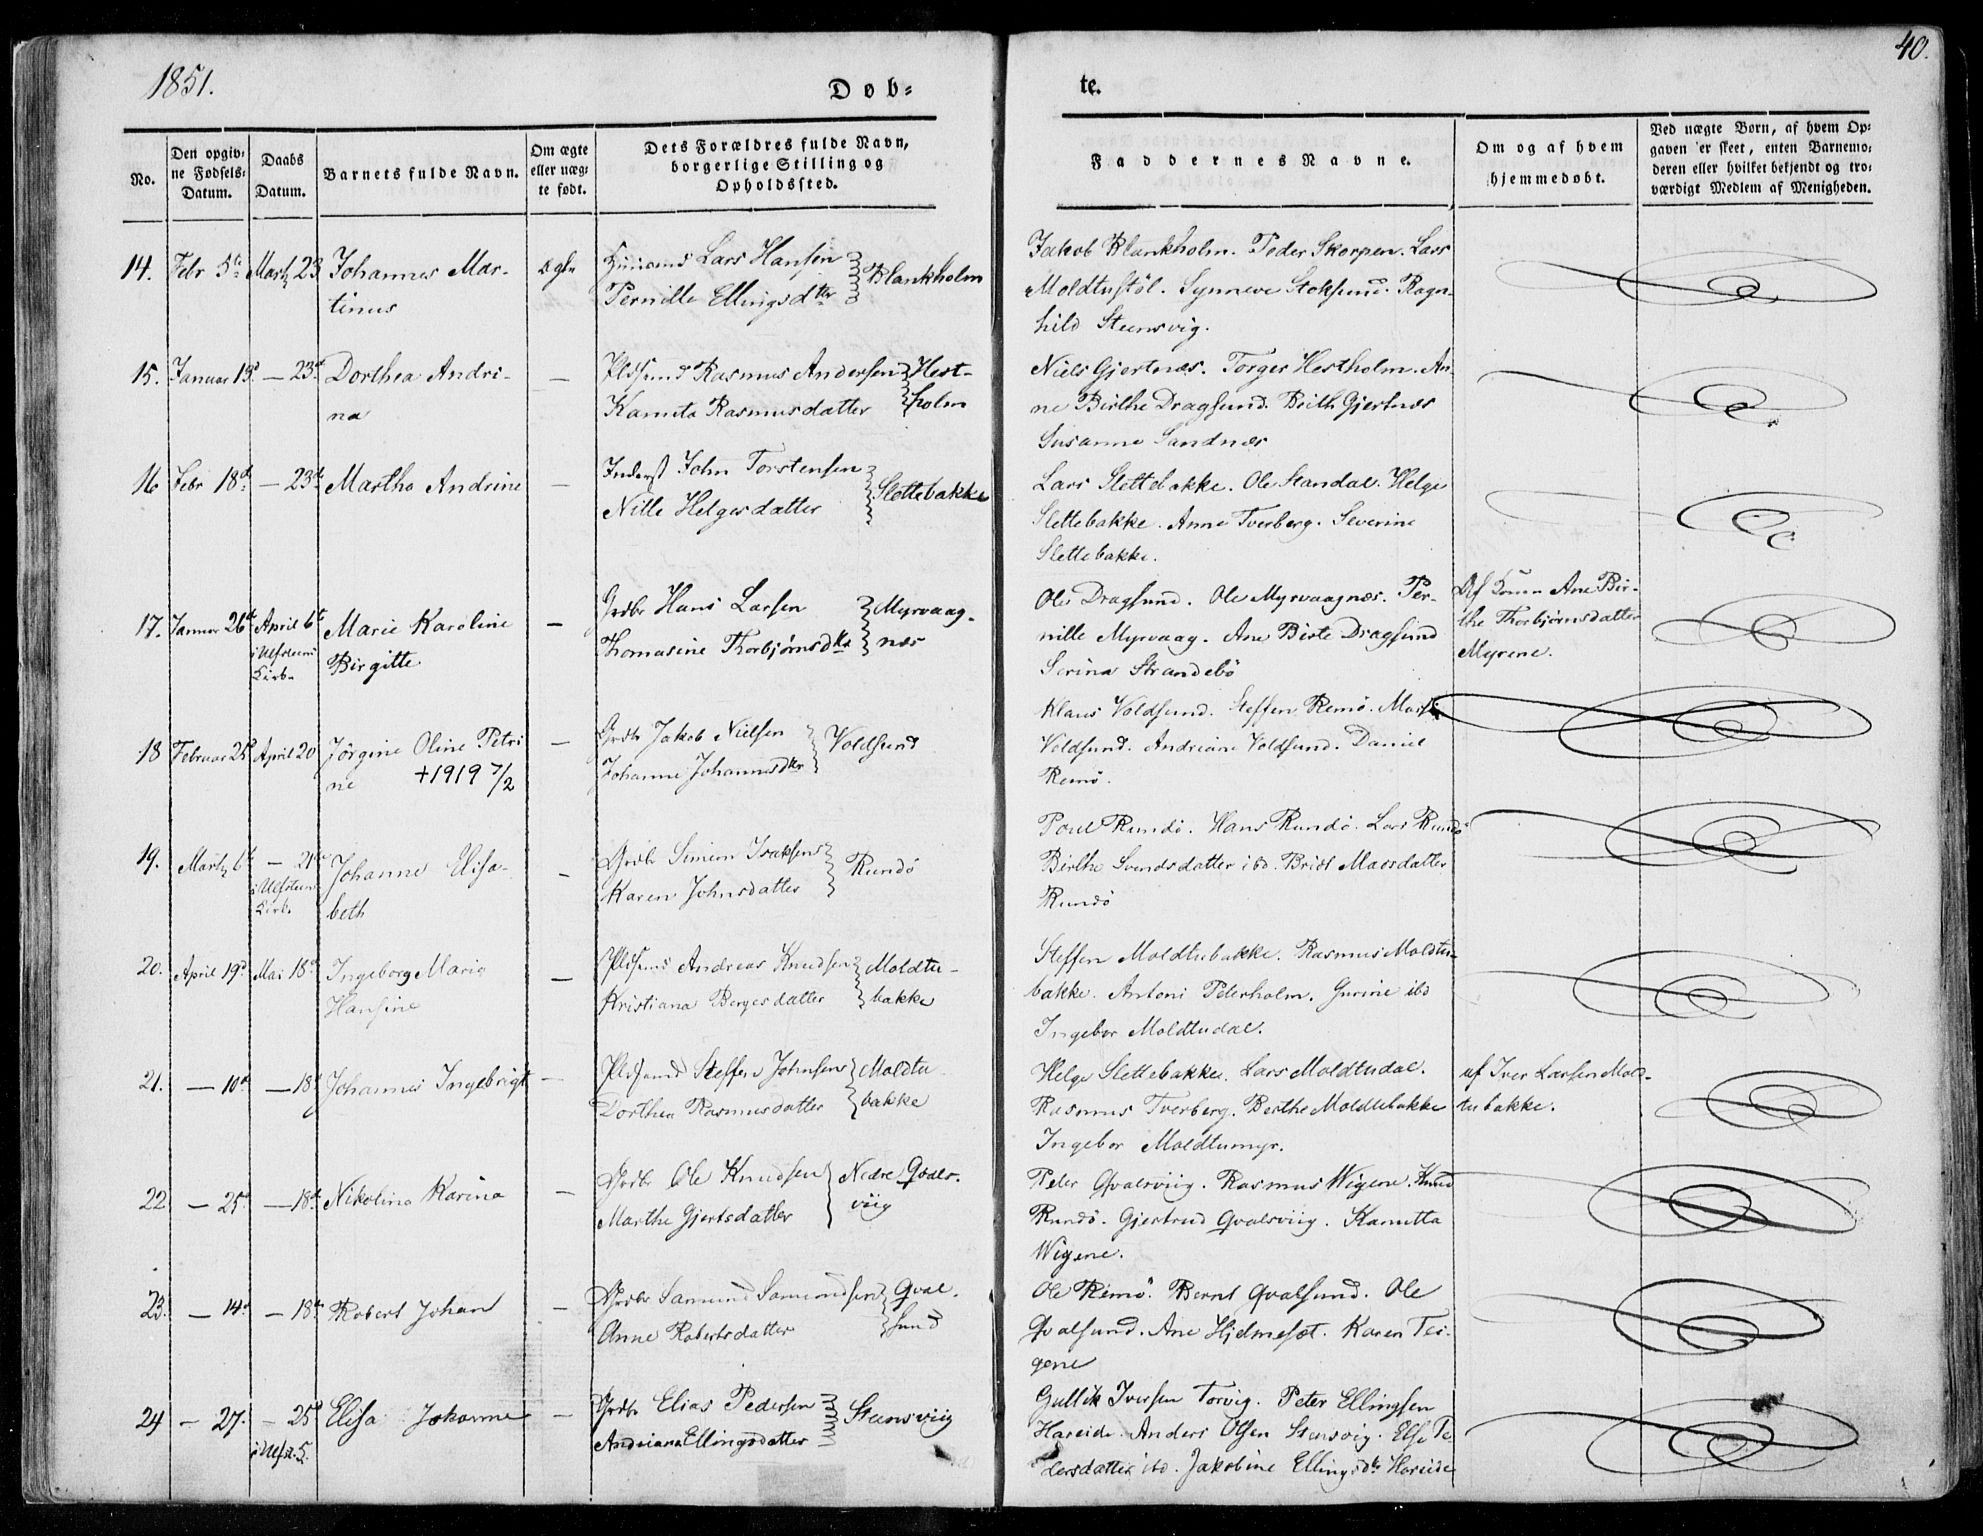 1851.
40.
Døb-
te.
No.
Den opgiv-
ne Fødsels-
Datum.
Daabs
Datum.
Barnets fulde Navn.
Om ægte
eller uæg-
te født.
Dets Forældres fulde Navn,
borgerlige Stilling og
Opholdssted.
Faddernes Navne.
Om og af hvem
hjemmedøbt.
Ved uægte Børn, af hvem Op-
gaven er skeet, enten Barnemo-
deren eller hvilket bekjendt og tro-
værdigt Medlem af Menigheden.
14. Febr 5te Marts 23 Johannes Mar-
tinus
Lars Hansen
Pernille Ellingsdtr
Blankholm
Jakob Blankholm. Peder Skorpen. Lars
Moldtustöl. Synneve Stoksund. Ragn-
hild Steensvig.
15. Januar 19d — 23d Dorthea Andri-
na
—
Pldsmd Rasmus Andersen
Kanuta Rasmusdatter
Hest-
holm
Niels Gjertnæs. Torger Hestholm. An-
ne Birthe Dragsund. Brith Gjertnæs
Susanne Sandnæs
16 Febr 18de — 23de Martha Andrine
—
Inderst John Torstensen
Nille Helgesdatter
Slettebakke
Lars Slettebakke. Ole Standal. Helge
Slettebakke. Anne Tverberg. Severine
Slettebakke.
17. Januar 26de April 6te
i Ulfsteen
Kirk.
Marie Karoline
Birgitte.
—
Grdbr Hans Larsen
Thomasine Thorbjørnsdtr
Myrvaag-
næs
Ole Dragsund. Ole Myrvaagnæs. Per-
nille Myrvaag. Ane Birte Dragsund
Serina Strandebö
Af Konen Ane Bir-
the Thorbjørnsdatter
Myrene.
18 Februar 25d April 20 Jörgine Oline Petri
ne +1919 7/2
—
Grdbr Jakob Nielsen
Johanne Johannesdtr
Voldsund
Klaus Voldsund. Steffen Remö.
Voldsund. Andriane Voldsund. Daniel
Remö.
19. Marts 6te — 21de
i Ulfsteen
Kirk.
Johanne Elisa-
beth
—
Grdbr Simeon Isaksen
Karen Johnsdatter
Rundö
Poul Rundö. Hans Rundö. Lars Rundö
Birthe Svendsdatter ibd. Bridt Marsdatter
Rundö
20. April 19d Mai 18de Ingeborg Marie
Hansine
—
Pldsmd Andreas Knudsen
Kristiana Bergesdatter
Moldtu-
bakke
Steffen Moldtubakke. Rasmus Moldtu-
bakke. Antoni Peterholm. Gurine ibd
Ingebor Moldtudal.
21. — 10d — 18d Johannes Ingebrigt
—
Pldsmd Steffen Johnsen
Dorthea Rasmusdatter
Moldtu-
bakke
Helge Slettebakke. Lars Moldtudal.
Rasmus Tverberg. Berthe Moldtubakke
Ingebor Moldtumyr.
af Iver Larsen Mold-
tubakke.
22 — 25d — 18de Nikolina Karina
—
Grdbr Ole Knudsen
Marthe Gjertsdatter
Nedre Qvals-
viig
Peter Qvalsviig. Rasmus Wigene. Knud
Rundö. Gjertrud Qvalsviig. Kanutta
Wigene.
23. — 14d — 18de Robert Johan
—
Grdbr Samund Samundsen
Anne Robertsdatter
Qval-
sund
Ole Remö. Bernt Qvalsund. Ole
Qvalsund. Ane Hjelmeset. Karen Tei-
gene
24 — 27. — 25d
i Ulfst.
Elisa Johanne
—
Grdbr Elias Pedersen
Andriana Ellingsdatter
Steensviig
Gullik Iversen Torvig. Peter Ellingsen
Hareide. Anders Olsen Stensvig. Else Pe-
dersdatter ibd. Jakobine Ellingsdtr Hareide